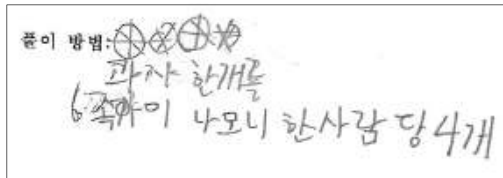 풀이 방법:
과자 한개를
6 나모니 한사람 당 4개